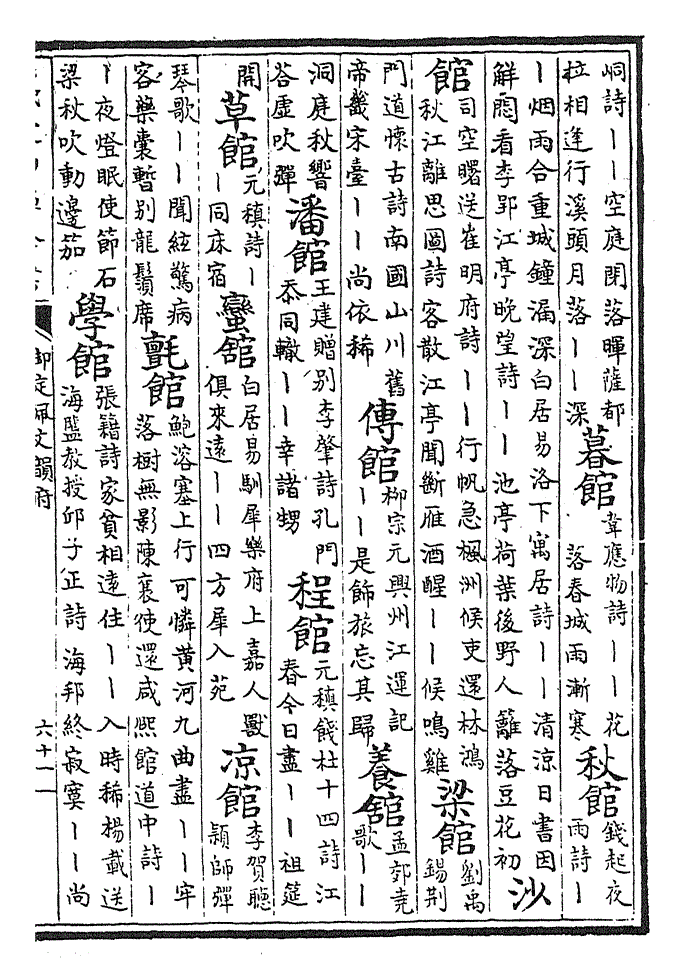 峒詩丨丨空庭閉落暉薩都
拉相逢行溪頭月落丨丨深
暮館
韋應物詩丨丨花
落春城雨漸寒
秋館
錢起夜
雨詩丨
丨烟雨合重城鐘漏深白居易洛下寓居詩丨丨清涼日書因
解悶看李郢江亭晚望詩丨丨池亭荷葉後野人籬落豆花初
沙
館
司空曙送崔明府詩丨丨行帆急楓洲候吏還林鴻
秋江離思圖詩客散江亭聞斷雁酒醒丨丨候鳴雞
梁館
劉禹
錫荆
門道懷古詩南國山川舊
帝畿宋臺丨丨尚依稀
傳館
柳宗元興州江運記
丨丨是飾旅忘其歸
養館
孟郊堯
歌丨丨
洞庭秋響
荅虛吹彈
潘館
王建贈別李肇詩孔門
忝同轍丨丨幸諸甥
程館
元稹餞杜十四詩江
春今日盡丨丨祖筵
開
草館
元稹詩丨
丨同床宿
蠻舘
白居易馴犀樂府上嘉人獸
俱來遠丨丨四方犀入苑
凉館
李賀聽
頴師彈
琴歌丨丨聞絃驚病
客藥囊暫别龍鬚席
氈館
鮑溶塞上行可憐黄河九曲盡丨丨牢
落樹無影陳襄使還咸熙館道中詩丨
丨夜燈眠使節石
梁秋吹動邊笳
學館
張籍詩家貧相遠住丨丨入時稀楊載送
海盬教授邱子正詩海邦終寂寞丨丨尚
御定佩文韻府